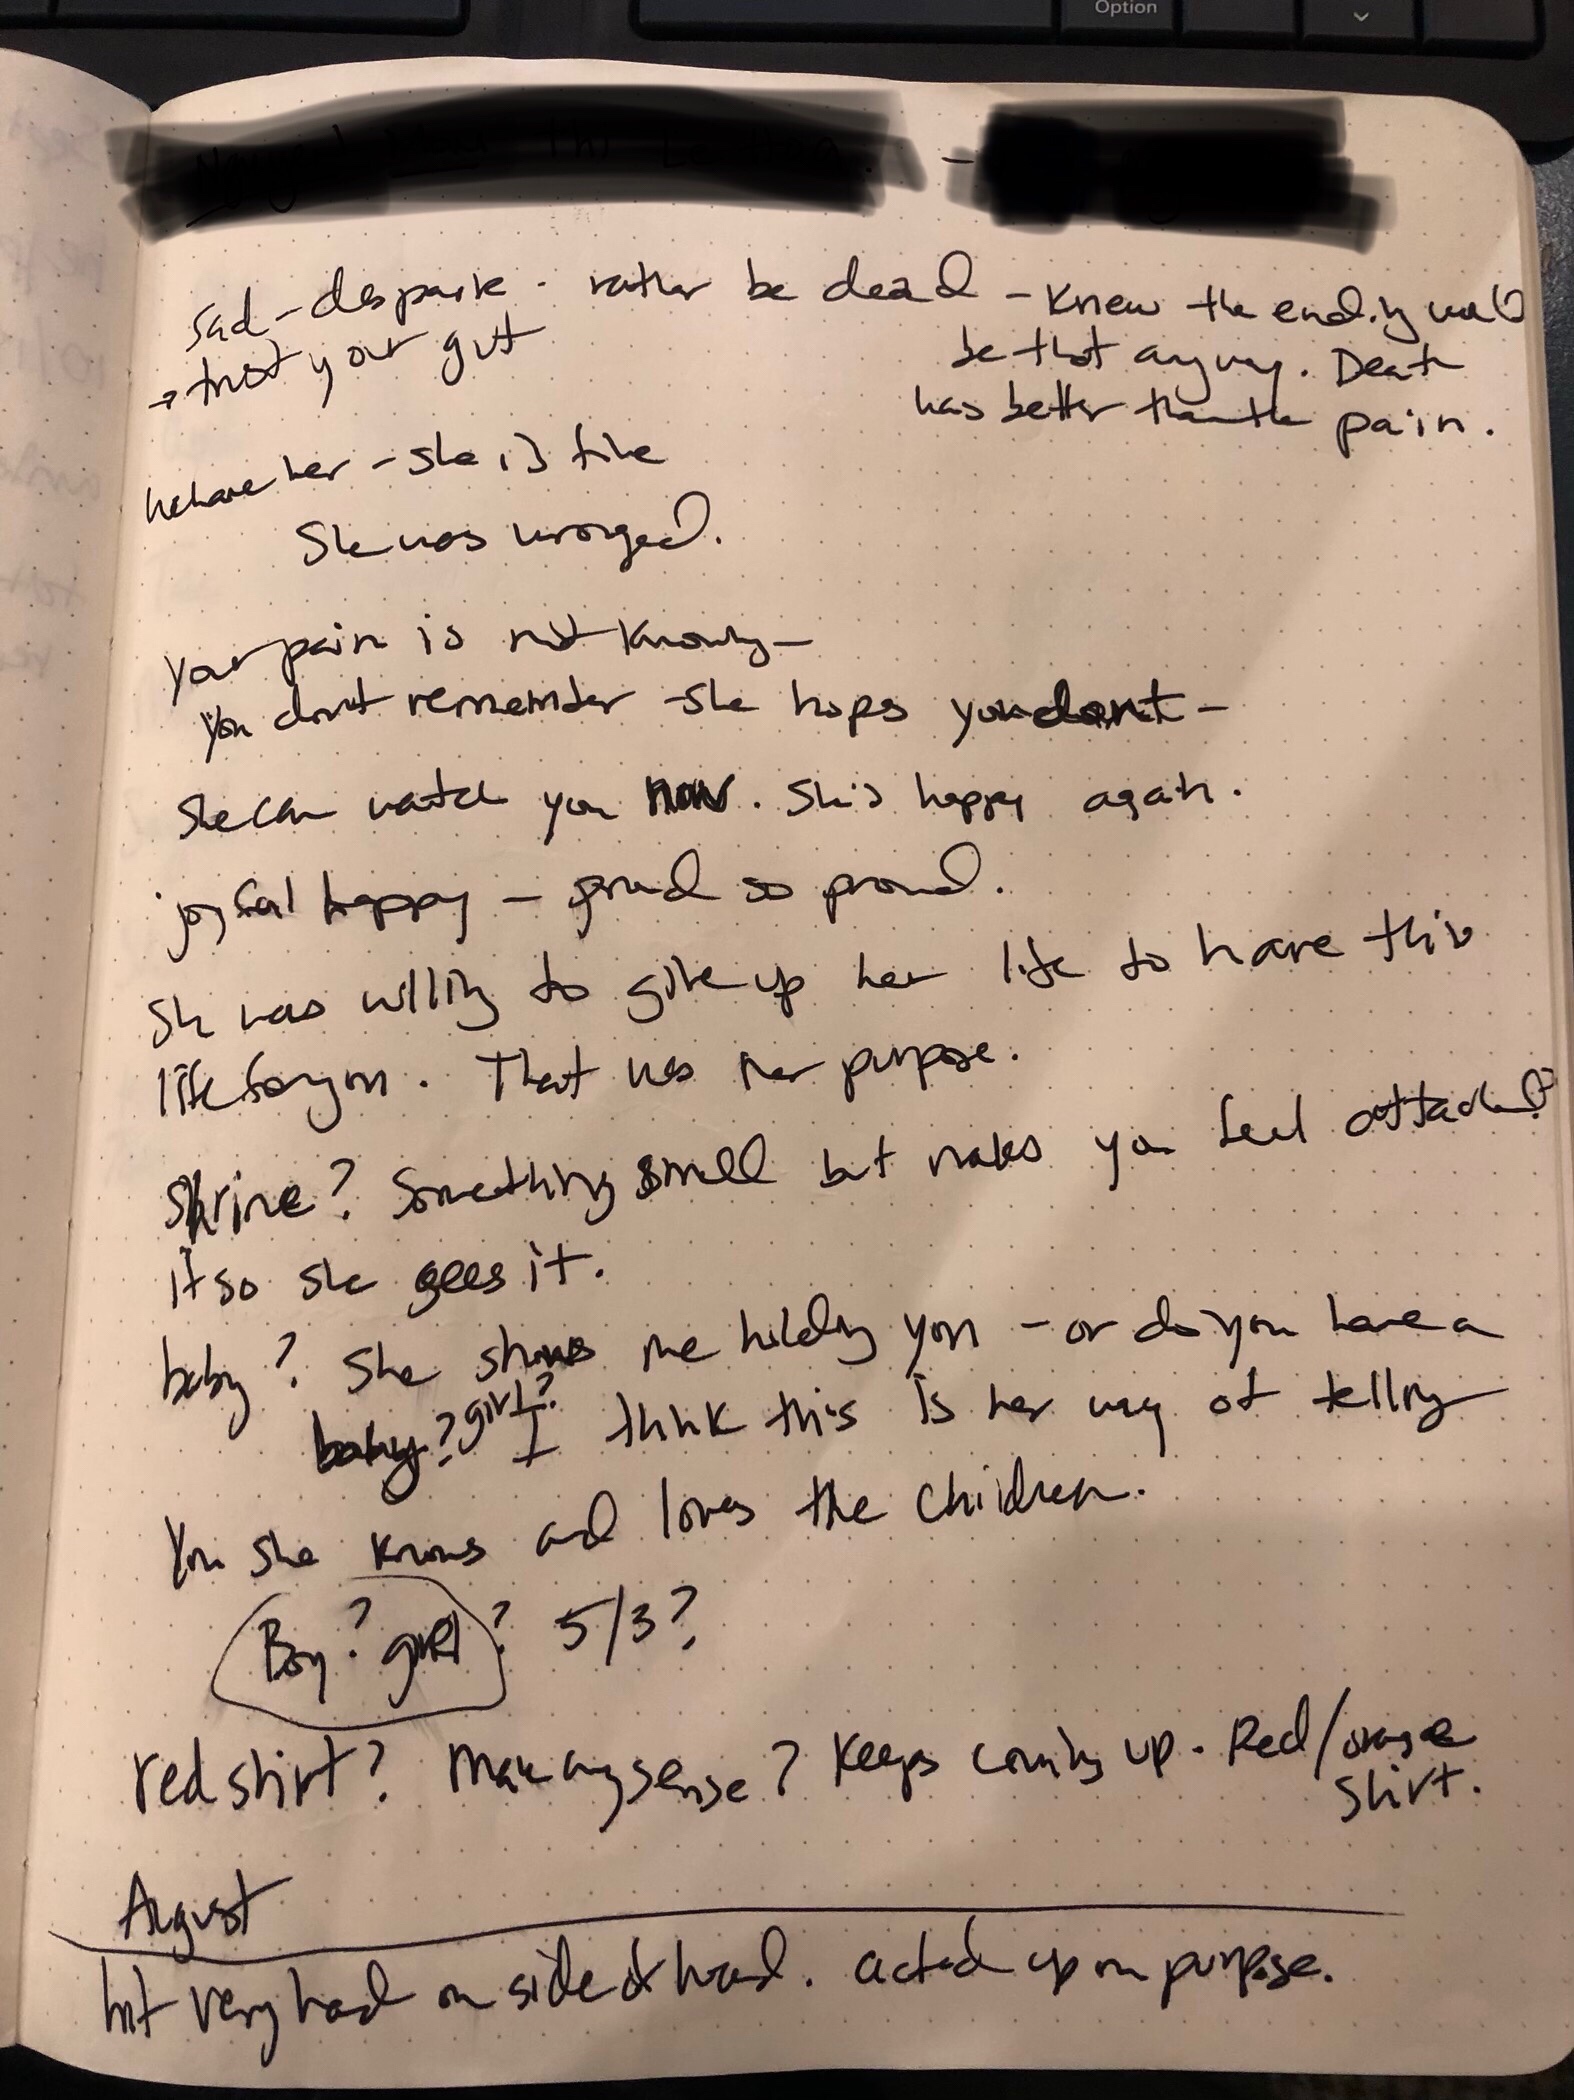 Option
sad - despair - rather be dead - knew the ending would
be that anyway. Death
was better than the pain.
→ trust your gut
her - she is fine
She was wronged.
Your pain is not knowing -
You dont remember - she hops you dont -
She can watch you now. She's happy again.
joyful happy - proud so proud.
She was willing to give up her life to have this
life for you. That was her purpose.
Shrine? Something small but makes you feel attached?
it so she sees it.
baby? She shows me holding you - or do you have a
baby? girl? I think this is her way of telling
You she knows and loves the children.
Boy? girl? 5/3?
red shirt? Make any sense? Keeps coming up. Red/orange
shirt.
August
hit very hard on side of head. acted upon purpose.